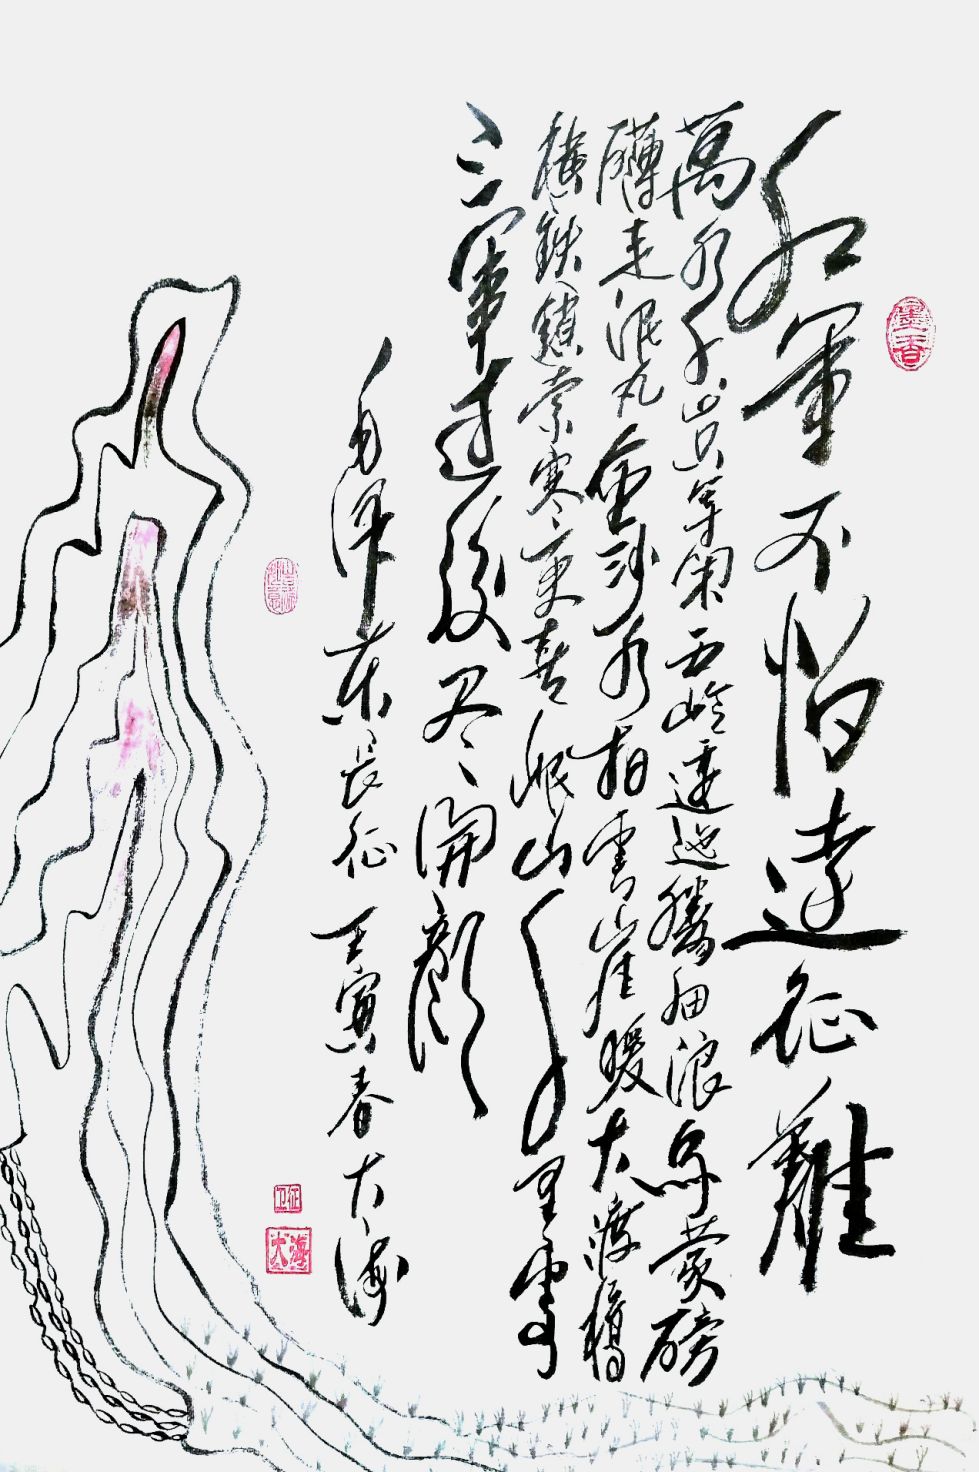 红軍不怕遠征難
萬水千山只等閑五嶺逶迤騰細浪烏蒙磅
礴走泥丸金沙水拍雲崖暖大渡橋
橫鉄鎖索寒更喜岷山千里雪
三軍过後尽開顏
毛泽东長征 壬寅春大海
墨香
征卫
大海